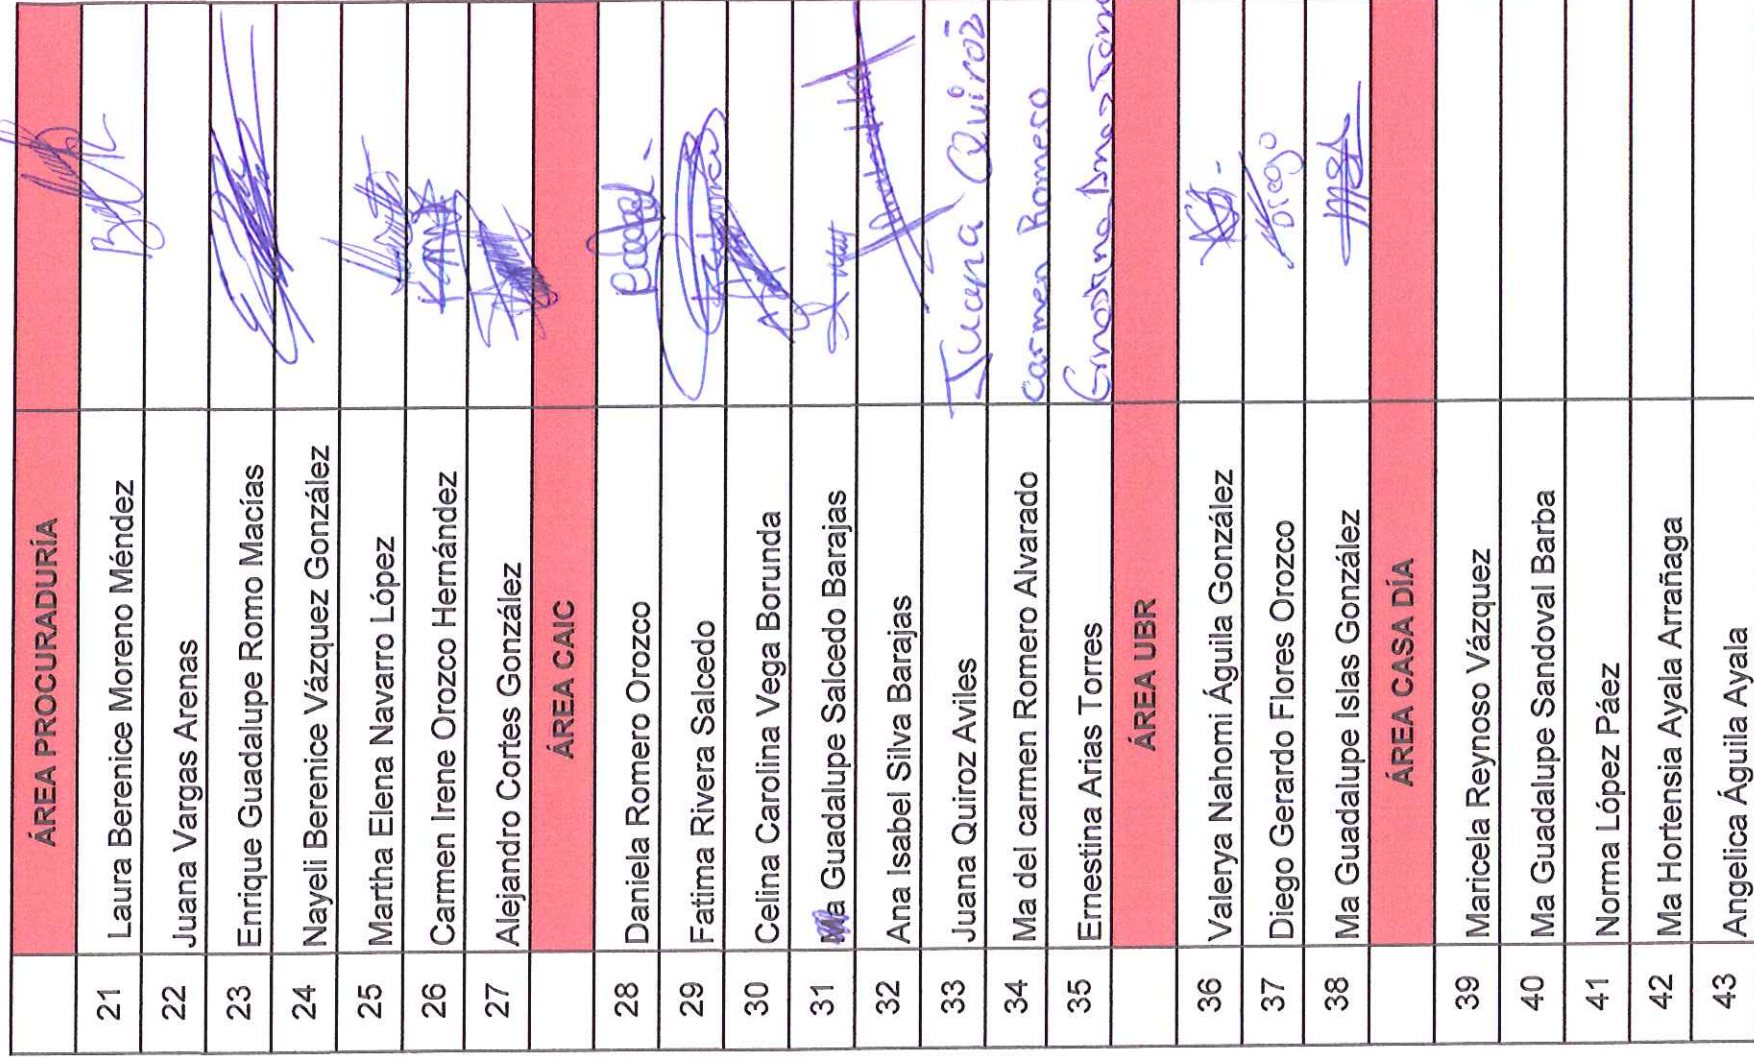 ÁREA PROCURADURÍA
21 Laura Berenice Moreno Méndez
22 Juana Vargas Arenas
23 Enrique Guadalupe Romo Macías
24 Nayeli Berenice Vázquez González
25 Martha Elena Navarro López
26 Carmen Irene Orozco Hernández
27 Alejandro Cortes González
ÁREA CAIC
28 Daniela Romero Orozco
29 Fatima Rivera Salcedo
30 Celina Carolina Vega Borunda
31 Ma Guadalupe Salcedo Barajas
32 Ana Isabel Silva Barajas
33 Juana Quiroz Aviles Juana Quiroz
34 Ma del carmen Romero Alvarado Carmen Romero
35 Ernestina Arias Torres Ernestina
ÁREA UBR
36 Valerya Nahomi Águila González
37 Diego Gerardo Flores Orozco Diego
38 Ma Guadalupe Islas González
ÁREA CASA DÍA
39 Maricela Reynoso Vázquez
40 Ma Guadalupe Sandoval Barba
41 Norma López Páez
42 Ma Hortensia Ayala Arrañaga
43 Angelica Águila Ayala